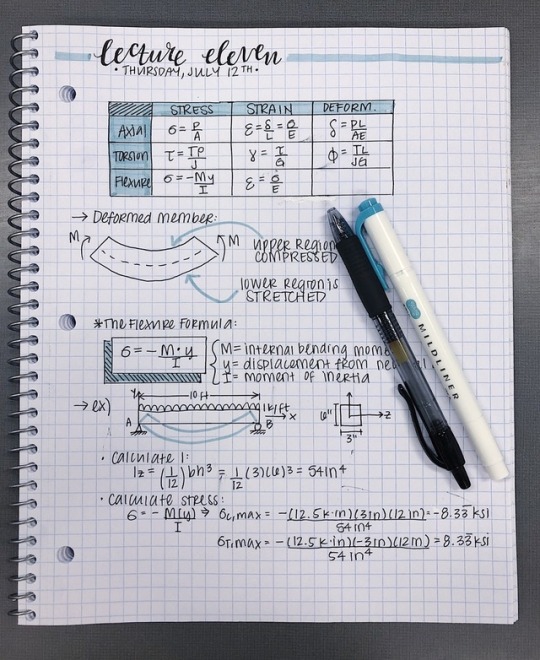 lecture eleven
• THURSDAY, JULY 12TH •
STRESS STRAIN DEFORM.
AXIAL σ = P/A ε = δ/L = σ/E δ = PL/AE
TORSION τ = Tρ/J γ = τ/G φ = TL/JG
Flexure σ = -My/I ε = σ/E
→ Deformed member:
M M
upper region
COMPRESSED
lower region is
STRETCHED
*The Flexure Formula:
σ = - M·y/I
M = internal bending
y = displacement from
I = moment of inertia
→ ex)
y 10 ft
1k/ft
A B x
6" z
3"
• Calculate I:
Iz = (1/12) bh³ = 1/12 (3)(6)³ = 54in⁴
• Calculate stress:
σ = - M(y)/I → σc,max = -(12.5 k·in)(3in)(12in)/54in⁴ = -8.33 ksi
σT,max = -(12.5k·in)(-3in)(12in)/54in⁴ = 8.33 ksi
MILDLINER